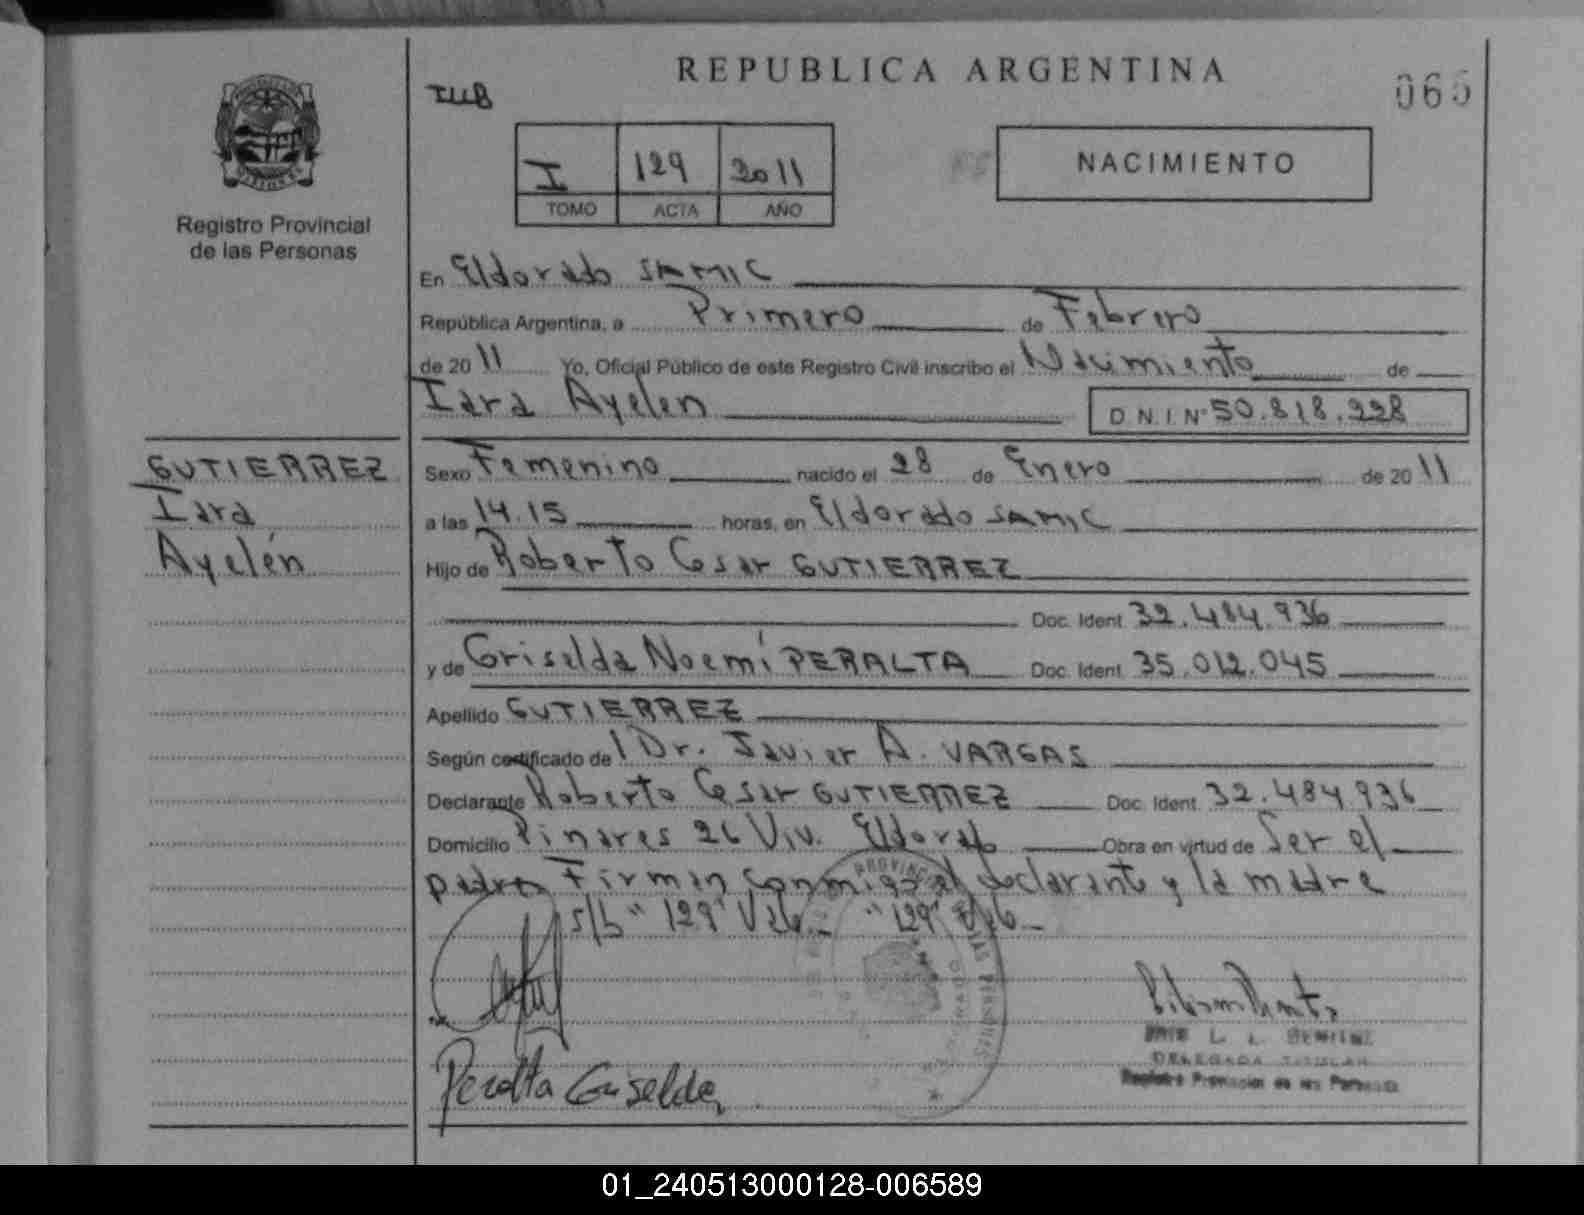 REPUBLICA ARGENTINA
065
I 129 2011
TOMO ACTA AÑO
NACIMIENTO
Registro Provincial
de las Personas
En Eldorado SAMIC
República Argentina, a Primero de Febrero
de 2011 Yo, Oficial Público de este Registro Civil inscribo el Nacimiento de
Iara Ayelen D.N.I. Nº 50.818.228
GUTIERREZ
Iara
Ayelén
Sexo Femenino nacido el 28 de Enero de 2011
a las 14.15 horas, en Eldorado SAMIC
Hijo de Roberto Cesar GUTIERREZ
Doc. Ident. 32.484.936
y de Griselda Noemí PERALTA Doc. Ident. 35.012.045
Apellido GUTIERREZ
Según certificado de l Dr. Javier A. VARGAS
Declarante Roberto Cesar GUTIERREZ Doc. Ident. 32.484.936
Domicilio Pinares 26 Viv. Eldorado Obra en virtud de Ser el
padre Firman conmigo el declarante y la madre
s/b "129" Vale "129" Vale
Peralta Griselda
DELEGADA TITULAR
Registro Provincial de las Personas
01_240513000128-006589